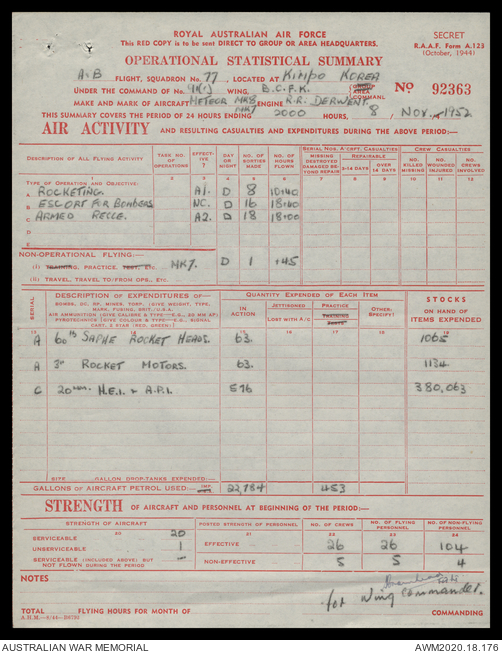 ROYAL AUSTRALIAN AIR FORCE
This RED COPY is to be sent DIRECT TO GROUP OR AREA HEADQUARTERS.
SECRET
R.A.A.F. Form A.125
(October, 1944)
OPERATIONAL STATISTICAL SUMMARY
A & B FLIGHT, SQUADRON No. 77, LOCATED AT KIMPO KOREA
UNDER THE COMMAND OF No. 91(C) WING, B.C.F.K. GROUP AREA COMMAND. No 92363
MAKE AND MARK OF AIRCRAFT METEOR MK8 MK7 ENGINE R.R. DERWENT
THIS SUMMARY COVERS THE PERIOD OF 24 HOURS ENDING 2000 HOURS, 8 NOV. 1952
AIR ACTIVITY AND RESULTING CASUALTIES AND EXPENDITURES DURING THE ABOVE PERIOD:—
DESCRIPTION OF ALL FLYING ACTIVITY
TASK NO. OF OPERATIONS
EFFECTIVE ?
DAY OR NIGHT
NO. OF SORTIES MADE
NO. OF HOURS FLOWN
SERIAL NOS. A'CFT. CASUALTIES
MISSING DESTROYED DAMAGED BEYOND REPAIR
REPAIRABLE
2-14 DAYS
OVER 14 DAYS
CREW CASUALTIES
NO. KILLED MISSING
NO. WOUNDED INJURED
NO. CREWS INVOLVED
1 2 3 4 5 6 7 8 9 10 11 12
TYPE OF OPERATION AND OBJECTIVE:
A ROCKETING A1. D 8 10.40
B ESCORT FOR BOMBERS NC. D 16 18.40
C ARMED RECCE. A2. D 18 18.00
D
NON-OPERATIONAL FLYING:—
(i) TRAINING, PRACTICE, TEST, Etc. MK7. D 1 .45
(ii) TRAVEL, TRAVEL TO/FROM OPS., ETC.
SERIAL
DESCRIPTION OF EXPENDITURES OF—
BOMBS, DC, RP, MINES, TORP. (GIVE WEIGHT, TYPE, MARK, FUSING, BRIT./U.S.A.
AIR AMMUNITION (GIVE CALIBRE & TYPE—E.G., 20 MM AP)
PYROTECHNICS (GIVE COLOUR & TYPE—E.G., SIGNAL CART. 2 STAR (RED, GREEN).
QUANTITY EXPENDED OF EACH ITEM
IN ACTION
JETTISONED
LOST WITH A/C
PRACTICE
TRAINING
TESTS
OTHER. (SPECIFY)
STOCKS
ON HAND OF ITEMS EXPENDED
13 14 15 16 17 18 19
A 60 lb SAPHE ROCKET HEADS. 63. 1065
A 3" ROCKET MOTORS. 63. 1134
C 20mm. H.E.I. & A.P.I. 576 380,063
SIZE GALLON DROP-TANKS EXPENDED:—
GALLONS OF AIRCRAFT PETROL USED:— IMP 22,784 453
STRENGTH OF AIRCRAFT AND PERSONNEL AT BEGINNING OF THE PERIOD:—
STRENGTH OF AIRCRAFT
20
POSTED STRENGTH OF PERSONNEL
21
NO. OF CREWS
22
NO. OF FLYING PERSONNEL
23
NO. OF NON-FLYING PERSONNEL
24
SERVICEABLE 20
UNSERVICEABLE 1
EFFECTIVE — 26 26 104
SERVICEABLE (INCLUDED ABOVE) BUT NOT FLOWN DURING THE PERIOD —
NON-EFFECTIVE 5 5 4
NOTES
for Wing Commander.
COMMANDING
TOTAL FLYING HOURS FOR MONTH OF
AUSTRALIAN WAR MEMORIAL
AWM2020.18.176